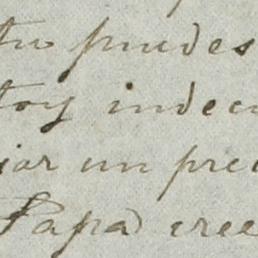 tu puedes
toy indec
jar un prec
Papá cree